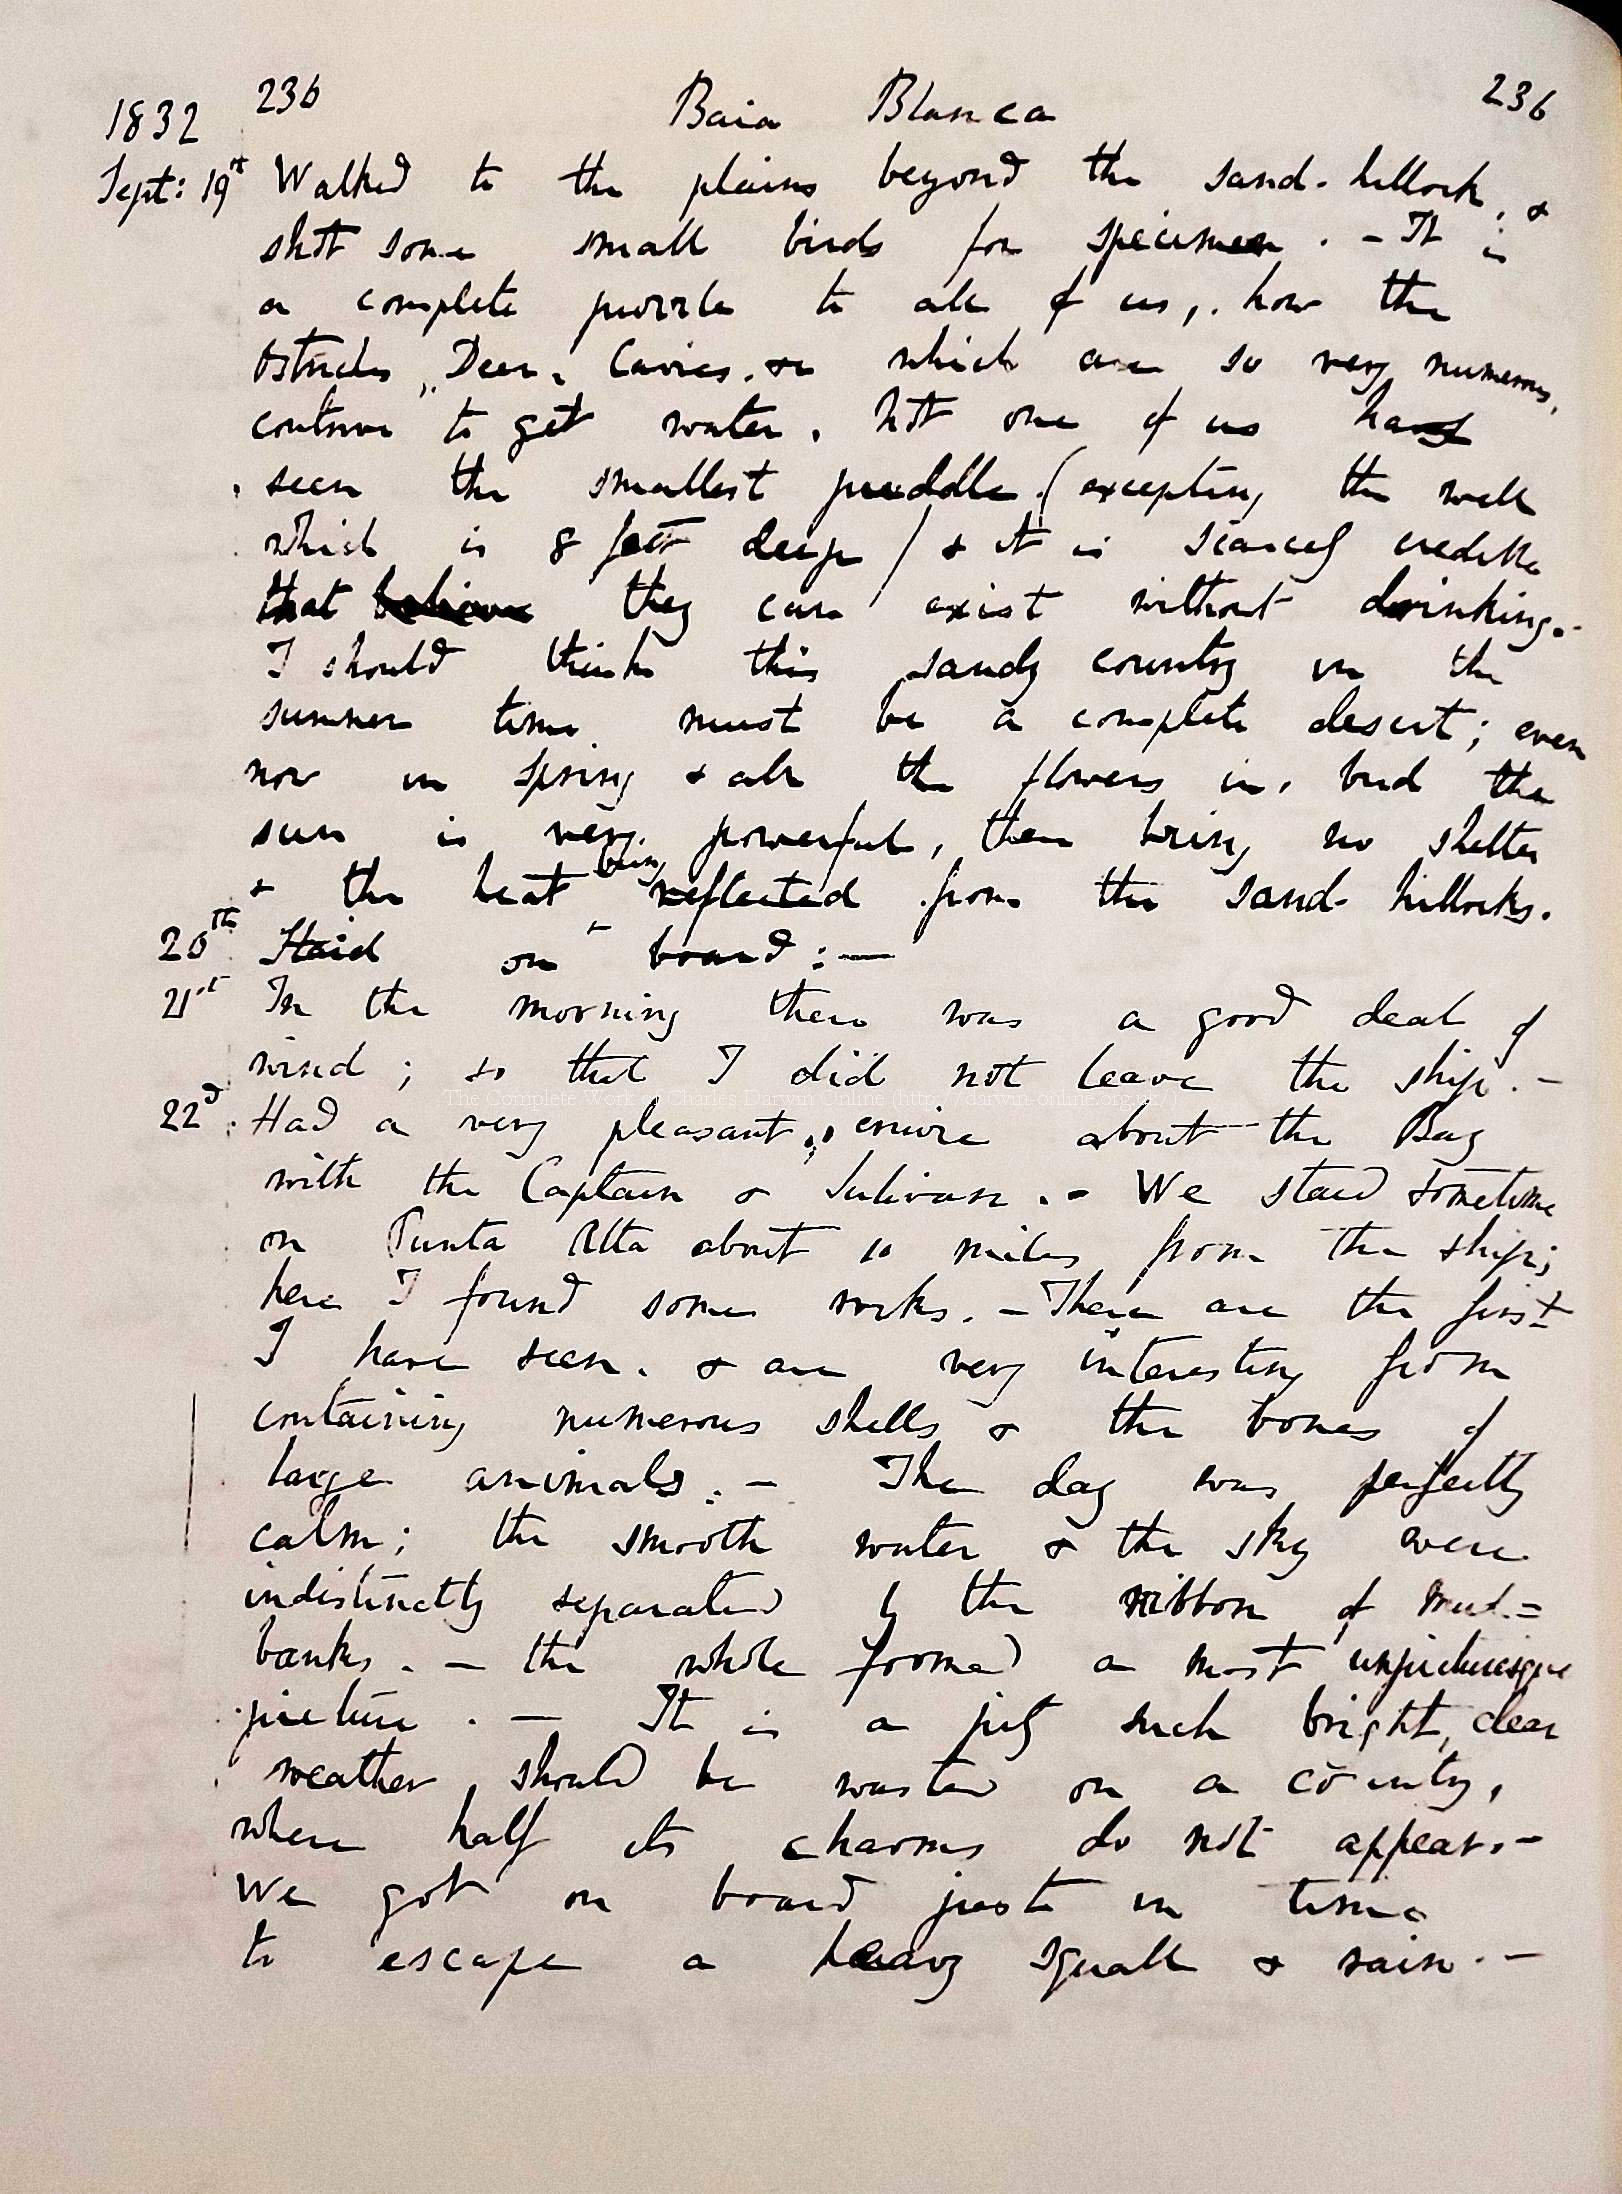 236 Baia Blanca 236
1832
Sept: 19th Walked to the plains beyond the sand-hillock, &
shot some small birds for specimen. — It is
a complete puzzle to all of us, how the
Ostriches, Deer, Cavies, &c which are so very numerous,
contrive to get water. Not one of us has
seen the smallest puddle (excepting the well
which is 8 feet deep) & it is scarcely credible
that they can exist without drinking. —
I should think this sandy country in the
summer time must be a complete desert; even
now in Spring & all the flowers in bud the
sun is very powerful, there being no shelter
& the heat being reflected from the sand-hillocks.
20th Staid on board: —
21st In the morning there was a good deal of
wind; so that I did not leave the ship. —
The Complete Work of Charles Darwin Online (http://darwin-online.org.uk/)
22d. Had a very pleasant cruize about the Bay
with the Captain & Sulivan. — We staid sometime
on Punta Alta about 10 miles from the ship;
here I found some rocks. — These are the first
I have seen, & are very interesting from
containing numerous shells & the bones of
large animals. — The day was perfectly
calm; the smooth water & the sky were
indistinctly separated by the ribbon of mud=
banks. — the whole formed a most unpicturesque
picture. — It is a pity such bright, clear
weather should be wasted on a country,
where half its charms do not appear. —
We got on board just in time
to escape a heavy squall & rain. —